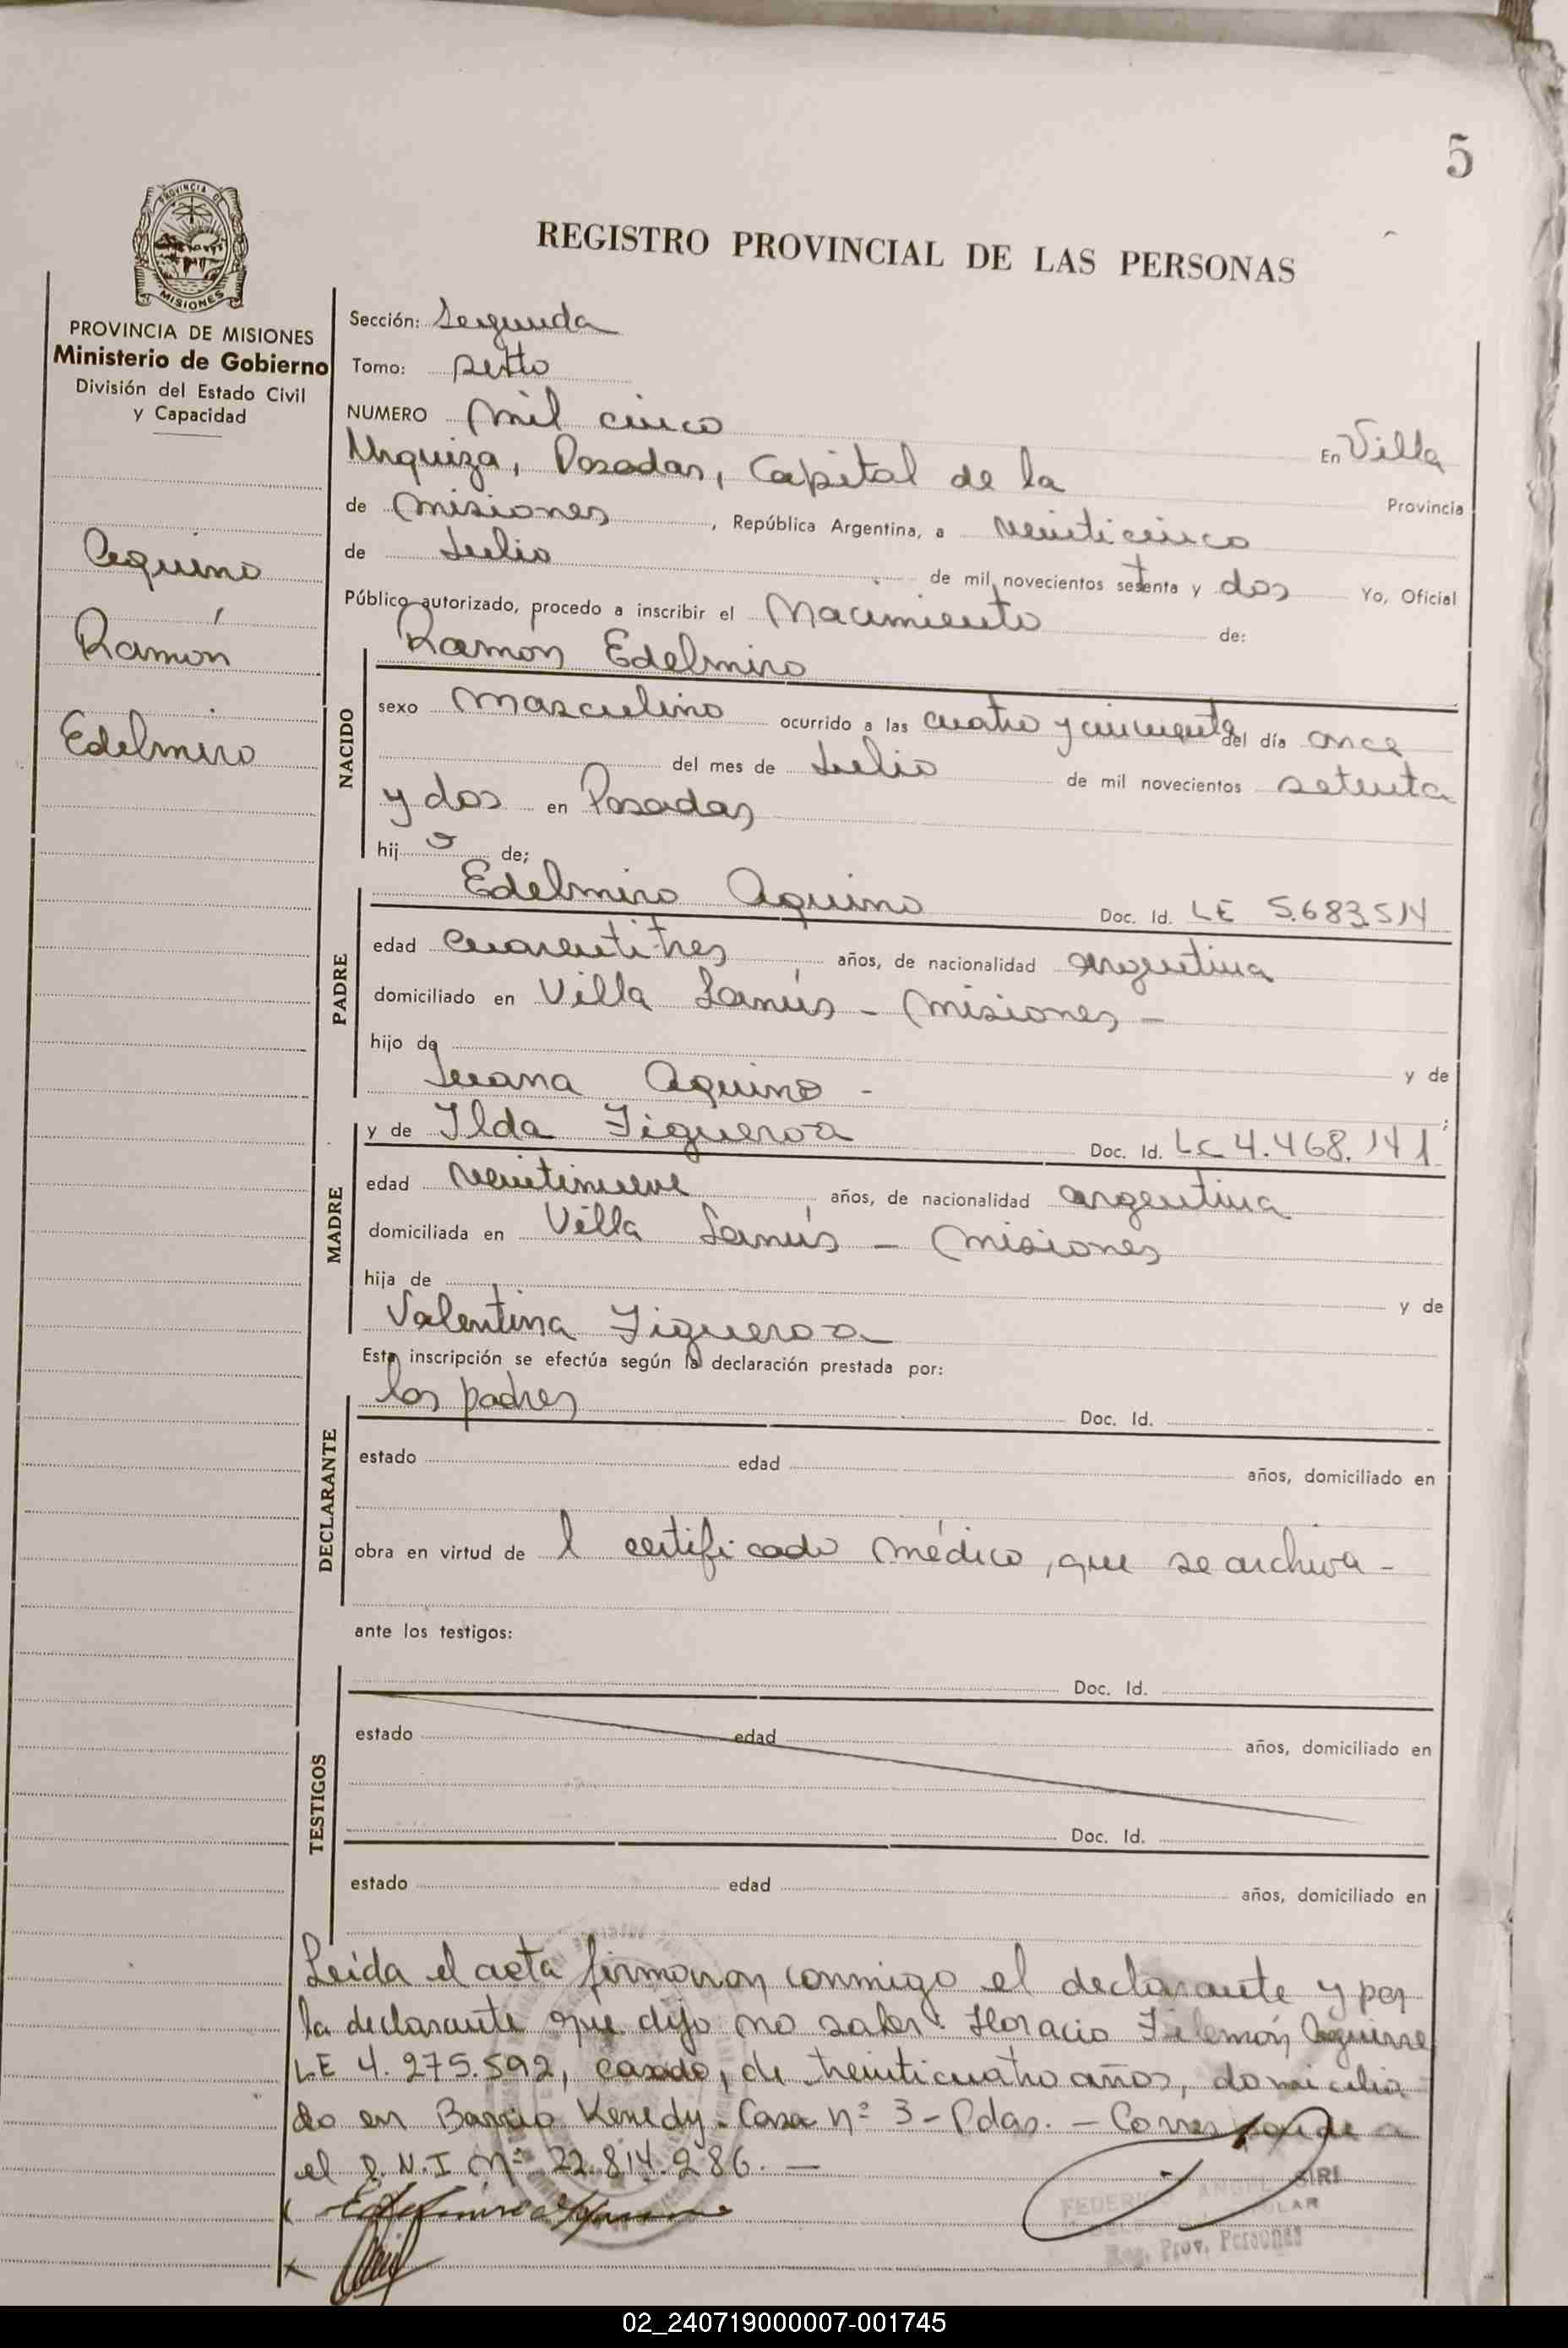 5
PROVINCIA DE
MISIONES
REGISTRO PROVINCIAL DE LAS PERSONAS
PROVINCIA DE MISIONES
Ministerio de Gobierno
División del Estado Civil
y Capacidad
Aquino
Ramón
Edelmiro
Sección: Segunda
Tomo: sexto
NUMERO mil cinco
En Villa
Urquiza, Posadas, Capital de la Provincia
de Misiones, República Argentina, a veinticinco
de Julio de mil novecientos setenta y dos Yo, Oficial
Público autorizado, procedo a inscribir el Nacimiento de:
NACIDO
Ramón Edelmiro
sexo masculino ocurrido a las cuatro y cincuenta del día once
del mes de Julio de mil novecientos setenta
y dos en Posadas
hij o de;
PADRE
Edelmiro Aquino Doc. Id. LE 5.683.514
edad cuarentitres años, de nacionalidad argentina
domiciliado en Villa Lanús - Misiones -
hijo de y de
Juana Aquino - ;
MADRE
y de Ilda Figueroa Doc. Id. LC 4.468.141
edad veintinueve años, de nacionalidad argentina
domiciliada en Villa Lanús - Misiones
hija de y de
Valentina Figueroa
Esta inscripción se efectúa según la declaración prestada por:
DECLARANTE
los padres Doc. Id.
estado edad años, domiciliado en
obra en virtud de l certificado médico, que se archiva -
ante los testigos:
TESTIGOS
Doc. Id.
estado edad años, domiciliado en
Doc. Id.
estado edad años, domiciliado en
Leída el acta firmaron conmigo el declarante y por
la declarante que dijo no saber: Horacio Filemón Aguirre
LE 4.275.592, casado, de treinticuatro años, domicilia
do en Barrio Kenedy - Casa nº 3 - Pdas. - Corresponde a
el D.N.I Nº 22.814.286. -
x Edelmiro Aquino
FEDERICO ANGEL SIRI
Reg. Prov. Personas
x
02_240719000007-001745